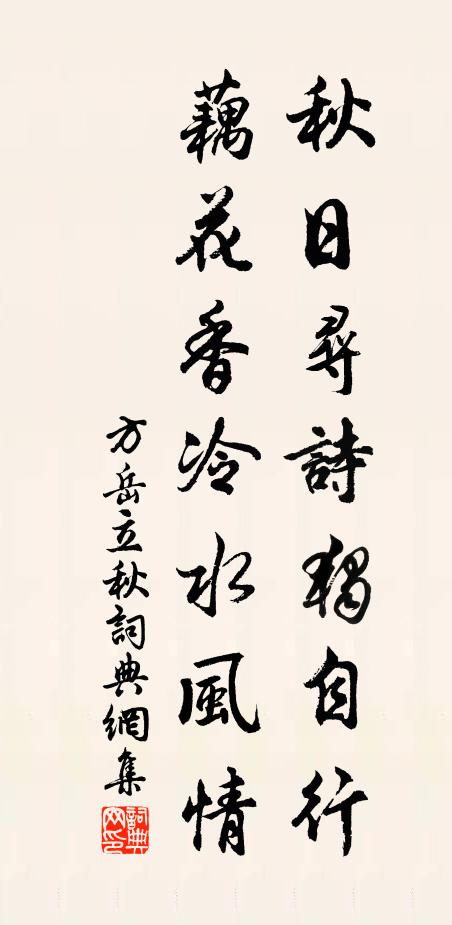 秋日尋詩獨自行
藕花香冷水風情
方岳立秋詞典網集
詞典網印